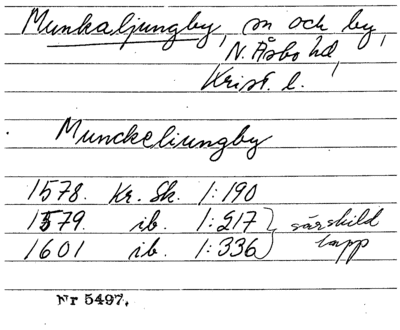 Munkaljungby, sn och by,
N. Åsbo hd,
Krist. l.
Munckeliungby
1578. Kr. Sk. 1:190
1579. ib. 1:217 } särskild
1601 ib. 1:336 } lapp
Nr 5497.